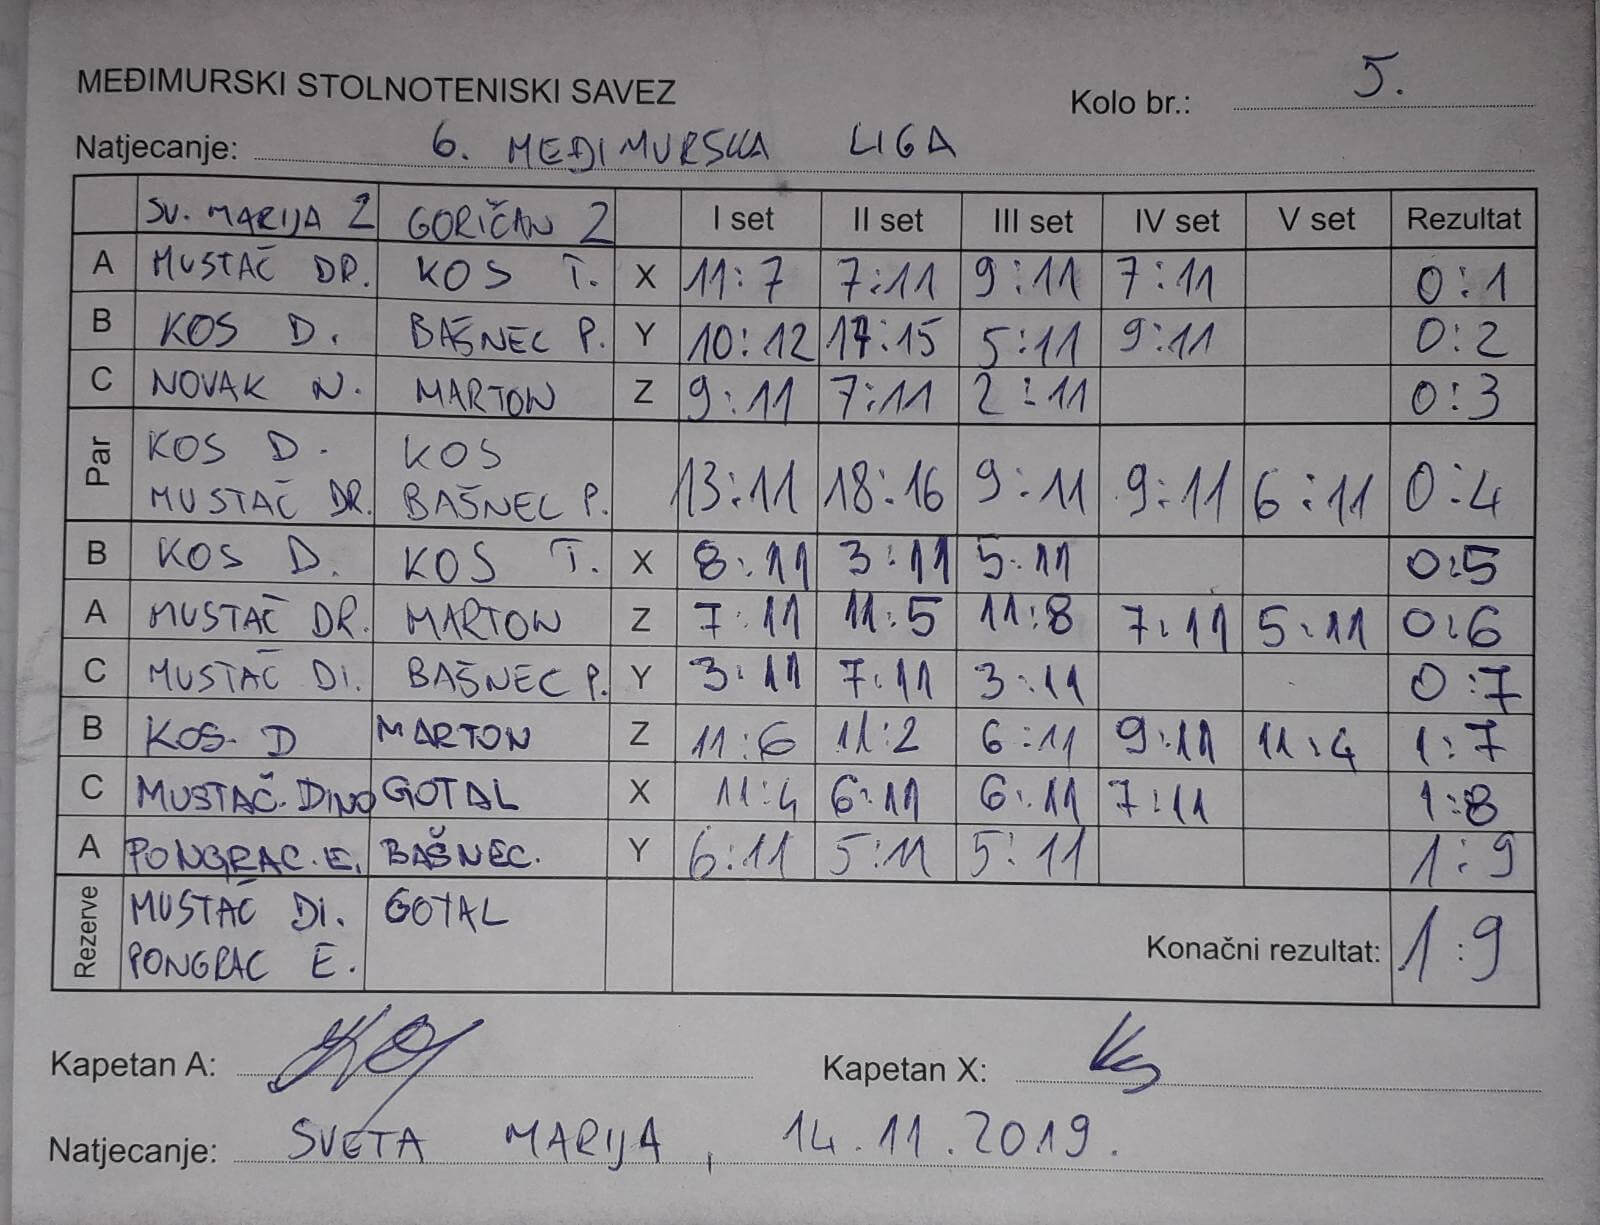 MEĐIMURSKI STOLNOTENISKI SAVEZ
Kolo br.: 5.
Natjecanje: 6. MEĐIMURSKA LIGA
SV. MARIJA 2 GORIČAN 2 I set II set III set IV set V set Rezultat
A MUSTAČ DR. KOS T. X 11:7 7:11 9:11 7:11 0:1
B KOS D. BAŠNEC P. Y 10:12 17:15 5:11 9:11 0:2
C NOVAK N. MARTON Z 9:11 7:11 2:11 0:3
Par KOS D. KOS
MUSTAČ DR. BAŠNEC P. 13:11 18:16 9:11 9:11 6:11 0:4
B KOS D. KOS T. X 8:11 3:11 5:11 0:5
A MUSTAČ DR. MARTON Z 7:11 11:5 11:8 7:11 5:11 0:6
C MUSTAČ DI. BAŠNEC P. Y 3:11 7:11 3:11 0:7
B KOS. D MARTON Z 11:6 11:2 6:11 9:11 11:4 1:7
C MUSTAČ. DINO GOTAL X 11:4 6:11 6:11 7:11 1:8
A PONGRAC. E. BAŠNEC. Y 6:11 5:11 5:11 1:9
Rezerve MUSTAČ DI. GOTAL
PONGRAC E. Konačni rezultat: 1:9
Kapetan A: Kapetan X:
Natjecanje: SVETA MARIJA, 14.11.2019.